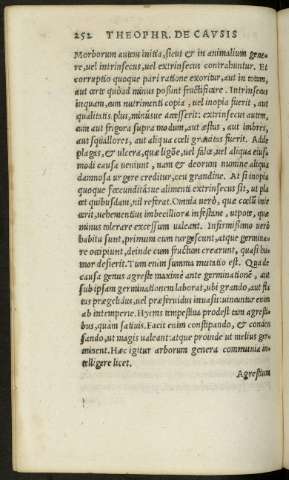 252 THEOPHR. DE CAVSIS
Morborum autem initia, sicut & in animalium gene=
re, uel intrinsecus, uel extrinsecus contrahuntur. Et
corruptio quoque pari ratione exoritur, aut in totum,
aut certe quòad minus possint fructificare. Intrinsecus
inquam, cum nutrimenti copia, uel inopia fuerit, aut
qualitatis plus, minúsue accesserit: extrinsecus autem,
cum aut frigora supra modum, aut æstus, aut imbres,
aut squallores, aut aliqua cœli grauitas fuerit. Adde
plagas, & ulcera, quæ ligõe, uel falce, uel aliqua eius
modi causa ueniunt, nam & deorum numine aliqua
damnosa urgere creditur, ceu grandine. At si inopia
quoque fœcunditásue alimenti extrinsecus sit, ut pla
cet quibusdam, nil referat. Omnia uerò, quæ cœli iniu
uehementius imbecilliora infestant, utpote, quæ
minus tolerare excessum ualeant. Infirmissimo uerò
habitu sunt, primum cum turgescunt, atque germina=
re occipiunt, deinde cum fructum crearunt, quasi hu=
mor desierit. Tum enim summa mutatio est. Quade
causa genus agreste maximè ante germinationē, aut
sub ipsam germinationem laborat, ubi grando, aut flu
tus prægelidus, uel præferuidus inuasit: uincuntur enim
ab intemperie. Hyems tempestiua prodest tum agresti=
bus, quàm satiuis. Facit enim constipando, & conden
sando, ut magis ualeant: atque proinde ut melius ger=
minent. Hæc igitur arborum genera communia in=
telligere licet.
Agrestium